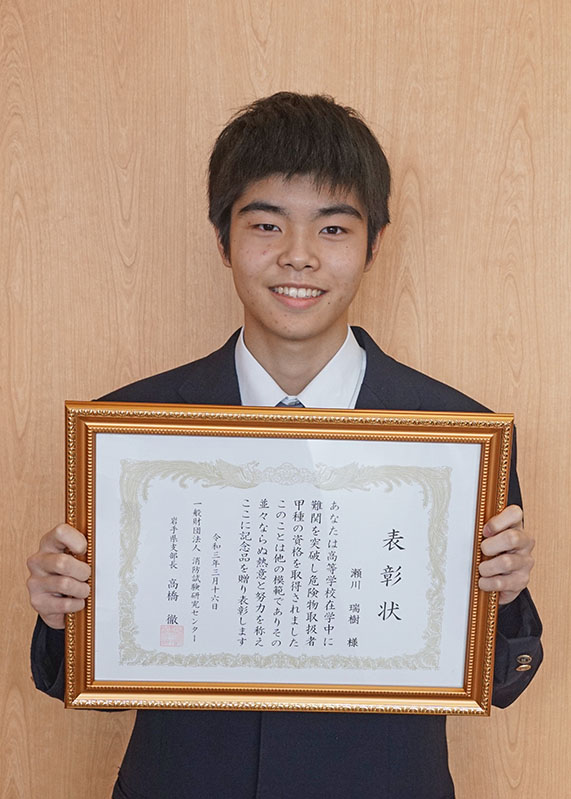 表彰状
瀬川 瑞樹 様
あなたは高等学校在学中に
難関を突破し危険物取扱者
甲種の資格を取得されました
このことは他の模範でありその
並々ならぬ熱意と努力を称え
ここに記念品を贈り表彰します
令和三年三月十六日
一般財団法人 消防試験研究センター
岩手県支部長 高橋 徹